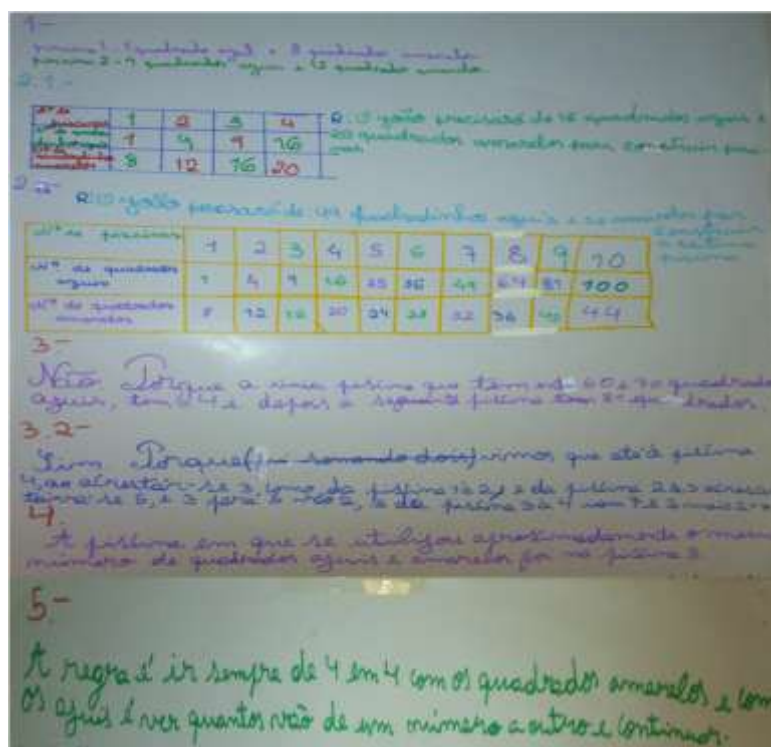 1-
piscina 1 - 1 quadrado azul e 8 quadrados amarelos
piscina 2 - 4 quadrados azuis e 12 quadrados amarelos
2.1-
Nº de piscinas 1 2 3 4
1 4 9 16
amarelos 8 12 16 20
R: O João precisará de 16 quadrados azuis e
20 quadrados amarelos para construir
R: O João precisará de 49 quadradinhos azuis e amarelos para
construir
a sétima
piscina
Nº de piscinas 1 2 3 4 5 6 7 8 9 10
Nº de quadrados azuis 1 4 9 16 25 36 49 64 81 100
Nº de quadrados amarelos 8 12 16 20 24 28 32 36 40 44
3-
Não Porque a uma piscina que tem 60 e 70 quadrados
azuis, tem 64 e depois a piscina tem 81 quadrados.
3.2-
Sim Porque (somando dois) vimos que até à piscina
4, ao 3, da piscina 1 à 2, e da piscina 2 à 3
5, e 3 para 5 2, e da piscina 3 à 4 7 e 5 mais 2
4
A piscina em que se utilizou aproximadamente o mesmo
número de quadrados azuis e amarelos foi na piscina
5-
A regra é ir sempre de 4 em 4 com os quadrados amarelos e com
os azuis é ver quantos vão de um número a outro e continuar.